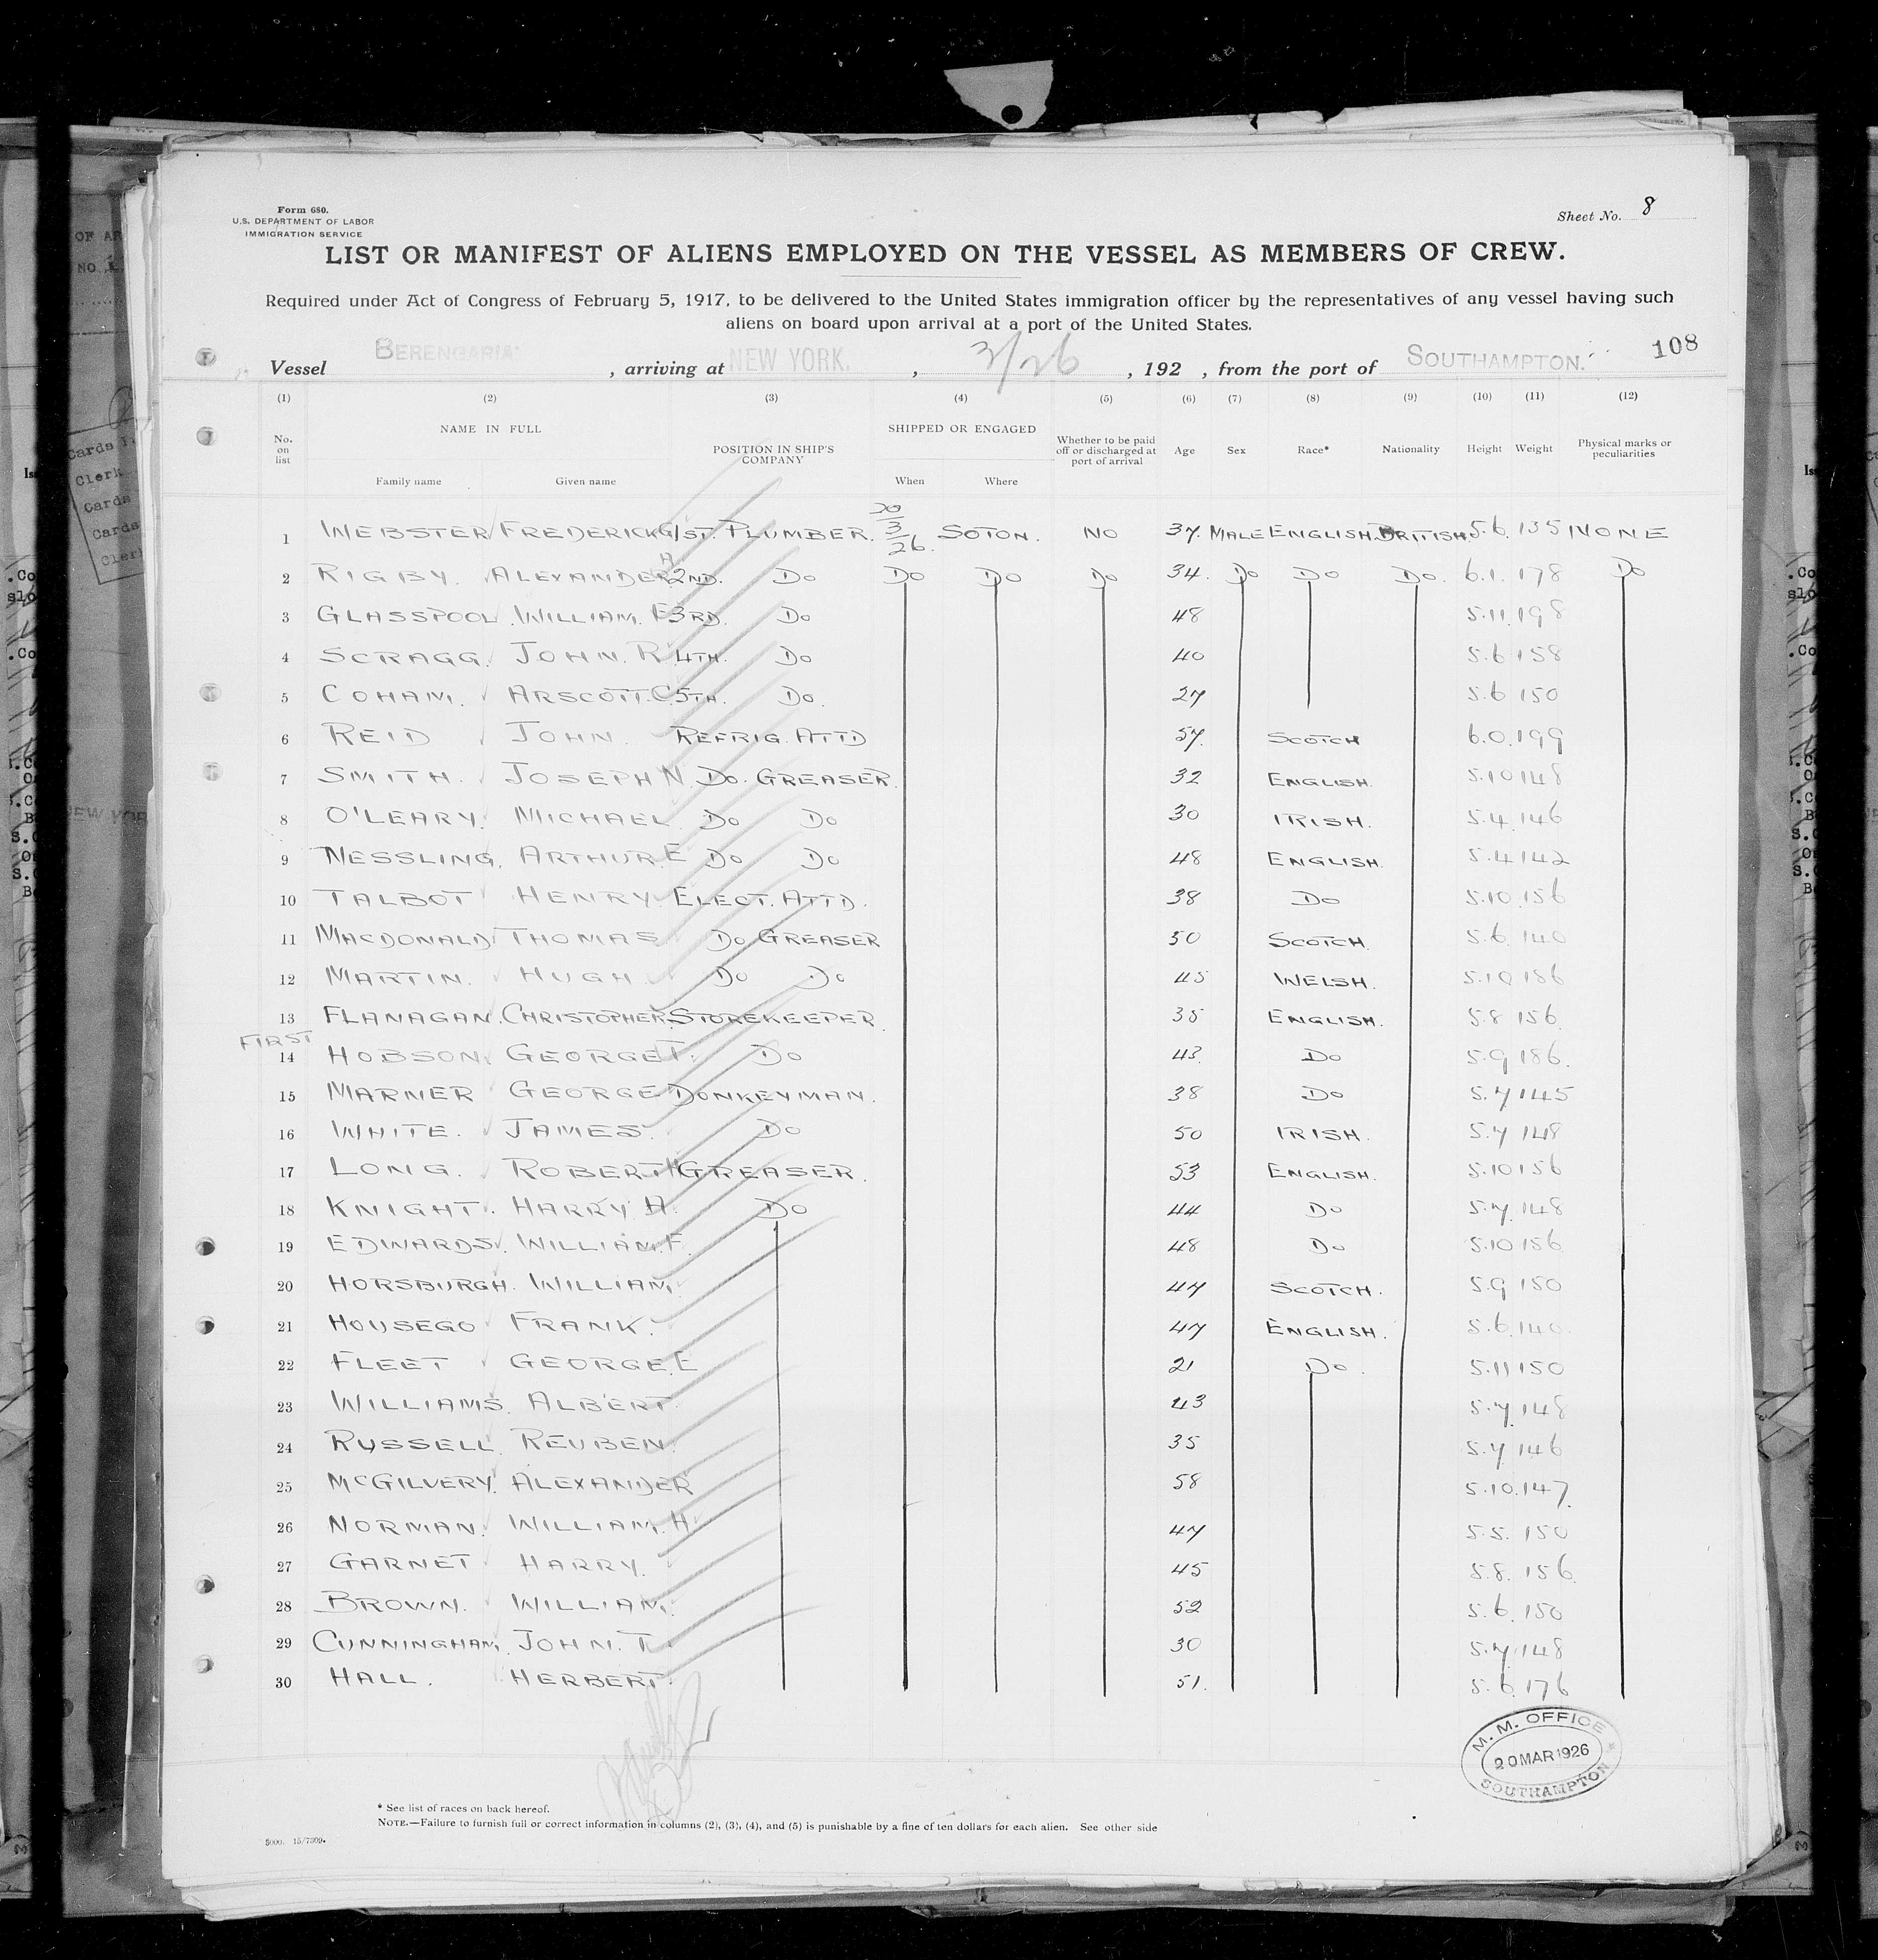 Form 680.
U.S. DEPARTMENT OF LABOR
IMMIGRATION SERVICE
Sheet No. 8
LIST OR MANIFEST OF ALIENS EMPLOYED ON THE VESSEL AS MEMBERS OF CREW.
Required under Act of Congress of February 5, 1917, to be delivered to the United States immigration officer by the representatives of any vessel having such
aliens on board upon arrival at a port of the United States.
108
Vessel BERENGARIA , arriving at NEW YORK. , 3/26 , 192 , from the port of SOUTHAMPTON.
(1) (2) (3) (4) (5) (6) (7) (8) (9) (10) (11) (12)
No. on list NAME IN FULL Family name Given name POSITION IN SHIP'S COMPANY SHIPPED OR ENGAGED When Where Whether to be paid off or discharged at port of arrival Age Sex Race* Nationality Height Weight Physical marks or peculiarities
1 WEBSTER FREDERICK G 1ST. PLUMBER. 20/3/26. SOTON. NO 37. MALE ENGLISH. BRITISH. 5.6. 135 NONE
2 RIGBY. ALEXANDER A 2ND. DO DO DO DO 34. DO DO DO. 6.1. 178 DO
3 GLASSPOOL. WILLIAM. F 3RD. DO 48 5.11. 198
4 SCRAGG. JOHN. R 4TH. DO 40 5.6 158
5 COHAM. ARSCOTT. C 5TH. DO. 27 5.6 150
6 REID JOHN REFRIG. ATTD 57. SCOTCH 6.0. 199
7 SMITH. JOSEPH N. DO. GREASER. 32 ENGLISH. 5.10 148
8 O'LEARY. MICHAEL. DO DO 30 IRISH. 5.4. 146
9 NESSLING. ARTHUR. E DO DO 48 ENGLISH. 5.4 142
10 TALBOT HENRY. ELECT. ATTD. 38 DO 5.10. 156
11 MACDONALD THOMAS DO GREASER 50 SCOTCH. 5.6. 140
12 MARTIN. HUGH. DO DO 45 WELSH. 5.10 186
13 FLANAGAN. CHRISTOPHER. STOREKEEPER. 35 ENGLISH. 5.8 156.
FIRST
14 HOBSON. GEORGE T. DO 43. DO 5.9 186.
15 MARNER GEORGE DONKEYMAN. 38 DO 5.7 145
16 WHITE. JAMES. DO 50 IRISH. 5.7 148
17 LONG. ROBERT H GREASER. 53 ENGLISH. 5.10 156
18 KNIGHT. HARRY A. DO 44 DO 5.7. 148
19 EDWARDS. WILLIAM. F. 48 DO 5.10 156
20 HORSBURGH. WILLIAM. 47 SCOTCH. 5.9 150
21 HOUSEGO FRANK. 47 ENGLISH. 5.6. 140
22 FLEET GEORGE. E 21 DO. 5.11 150
23 WILLIAMS. ALBERT. 43 5.7. 148
24 RUSSELL. REUBEN. 35 5.7 146
25 MCGILVERY. ALEXANDER 58 5.10. 147.
26 NORMAN. WILLIAM. H. 47 5.5. 150
27 GARNET HARRY. 45 5.8. 156.
28 BROWN. WILLIAM. 52 5.6. 150
29 CUNNINGHAM. JOHN. T. 30 5.7. 148
30 HALL. HERBERT. 51. 5.6. 176
M. M. OFFICE
20 MAR 1926
SOUTHAMPTON
* See list of races on back hereof.
NOTE.—Failure to furnish full or correct information in columns (2), (3), (4), and (5) is punishable by a fine of ten dollars for each alien. See other side
5000. 15/7309.